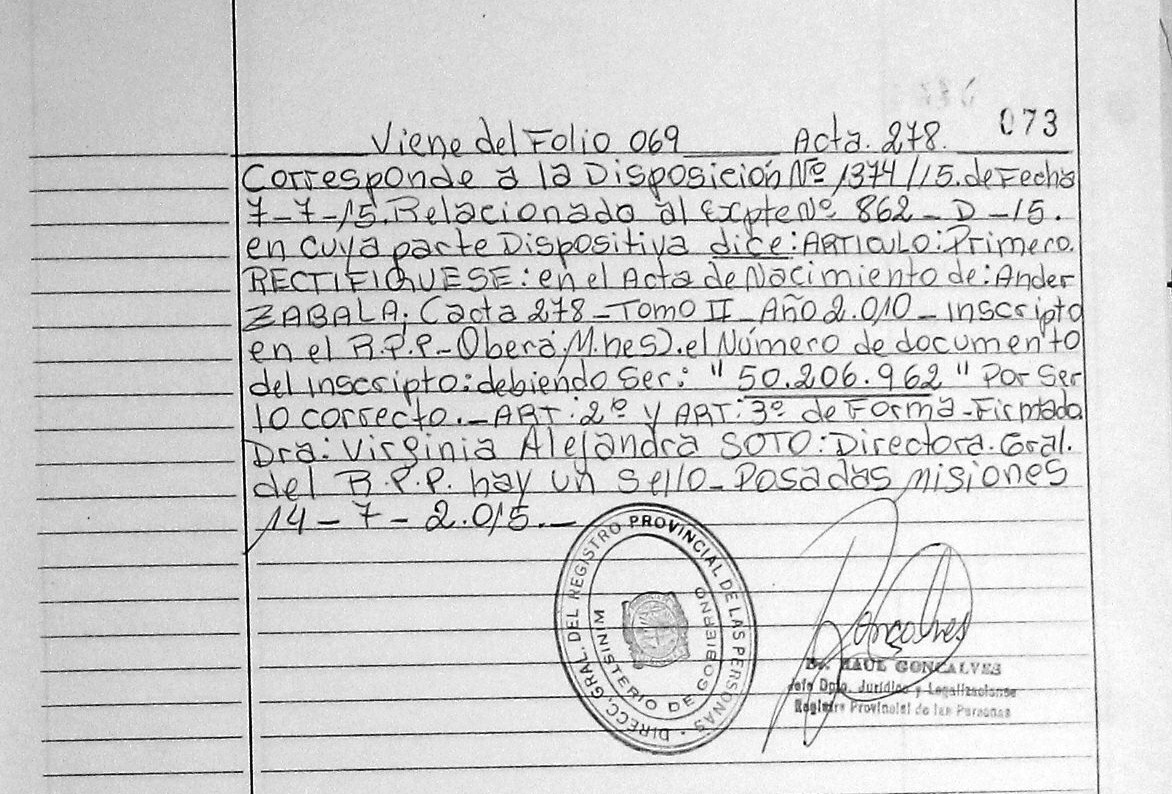 073
Viene del Folio 069 Acta. 278.
Corresponde a la Disposición Nº 1374/15. de Fecha
7-7-15. Relacionado al Expte Nº 862-D-15.
en cuya parte Dispositiva dice: ARTICULO: Primero.
RECTIFIQUESE: en el Acta de Nacimiento de: Ander
ZABALA; (acta 278-Tomo II-Año 2.010-inscripto
en el R.P.P-Oberá, M.nes). el Número de documento
del inscripto: debiendo ser: "50.206.962" Por ser
lo correcto.-ART: 2º y ART: 3º de Forma-Firmada
Dra: Virginia Alejandra SOTO: Directora. Gral.
del R.P.P. hay un sello-Posadas Misiones
14-7-2.015.-
DIRECC. GRAL. DEL REGISTRO PROVINCIAL DE LAS PERSONAS
MINISTERIO DE GOBIERNO
Gonçalves
Dr. RAUL GONCALVES
Jefe Dpto. Jurídico y Legalizaciones
Registro Provincial de las Personas